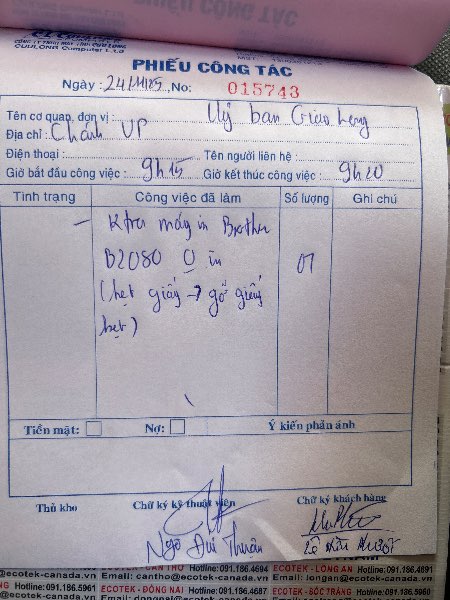 CÔNG TY TNHH MÁY TÍNH CỬU LONG
CUULONG Computer L.t.d
PHIẾU CÔNG TÁC
Ngày : 24/11/25, No: 015743
Tên cơ quan, đơn vị : Uỷ ban Giao Long
Địa chỉ : Chánh VP
Điện thoại : Tên người liên hệ :
Giờ bắt đầu công việc : 9h15 Giờ kết thúc công việc : 9h20
Tình trạng Công việc đã làm Số lượng Ghi chú
– Ktra máy in Brother
B2080 0 in 01
(hẹt giấy → gỡ giấy
hẹt)
Tiền mặt: Nợ: Ý kiến phản ánh
Thủ kho Chữ ký kỹ thuật viên Chữ ký khách hàng
Ngô Dui Thuân
CẦN THƠ Hotline: 091.186.4694 ECOTEK - LONG AN Hotline: 091.186.4691
@ecotek-canada.vn Email: cantho@ecotek-canada.vn Email: longan@ecotek-canada.vn
Hotline: 091.186.5961 ECOTEK - ĐỒNG NAI Hotline: 091.186.4687 ECOTEK - SÓC TRĂNG Hotline: 091.186.5960